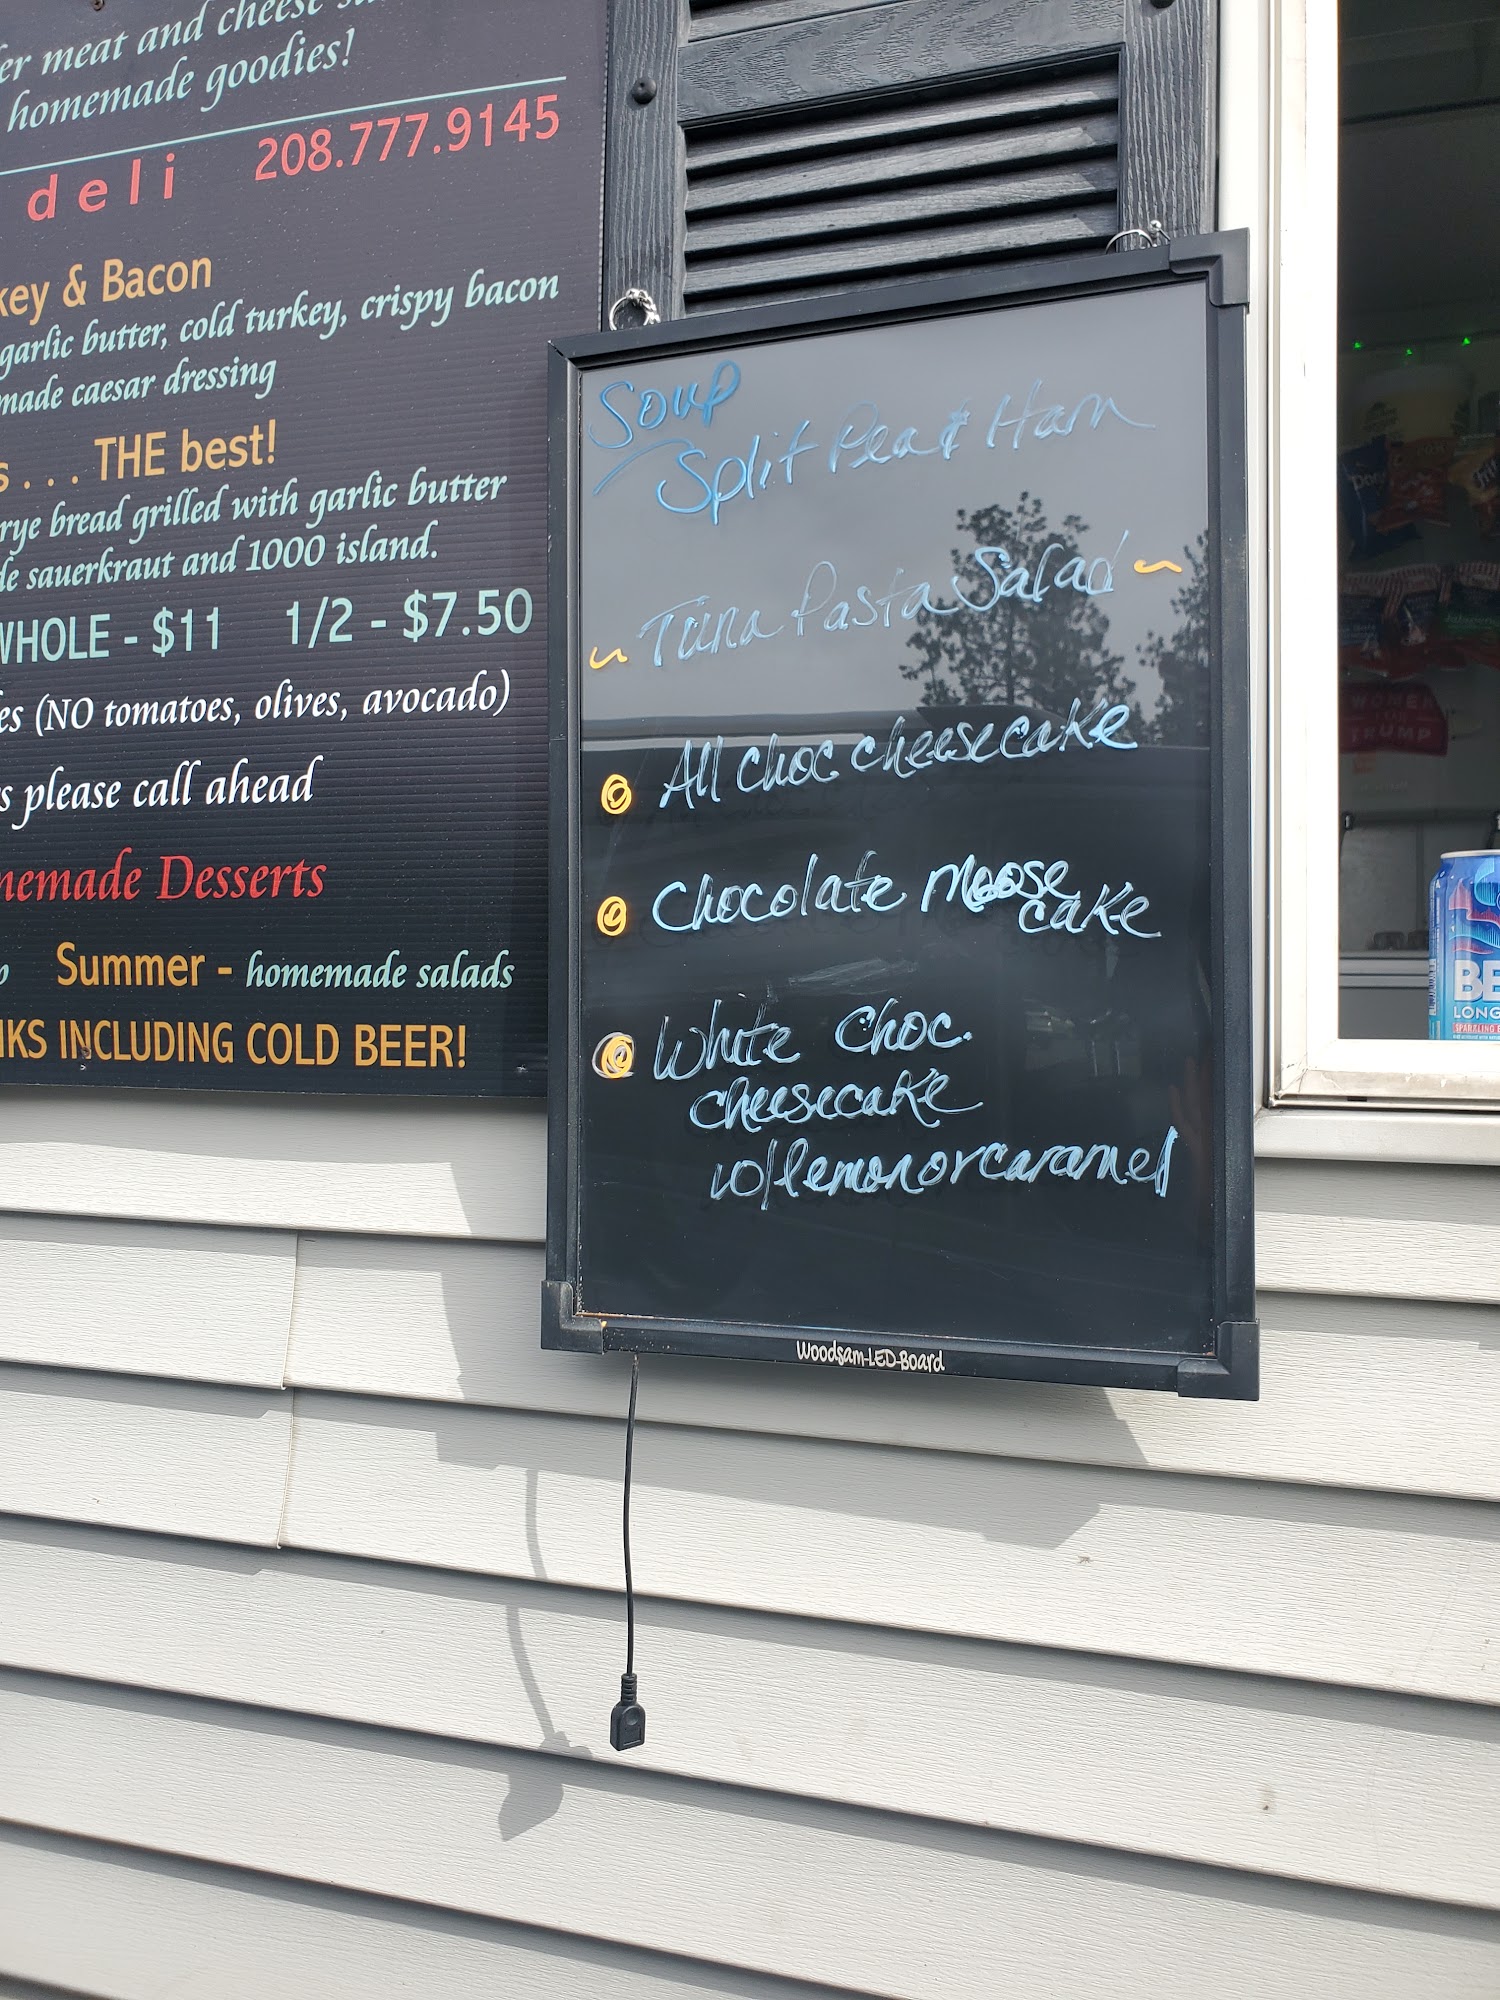 meat and cheese
homemade goodies!
deli 208.777.9145
& Bacon
garlic butter, cold turkey, crispy bacon
made caesar dressing
. . . THE best!
rye bread grilled with garlic butter
sauerkraut and 1000 island.
WHOLE - $11 1/2 - $7.50
(NO tomatoes, olives, avocado)
please call ahead
Desserts
Summer - homemade salads
INCLUDING COLD BEER!
Soup
Split Pea & Ham
~ Tuna Pasta Salad ~
All choc cheesecake
Chocolate Moose
cake
White choc.
cheesecake
w/lemon or caramel
Woodsam-LED-Board
WOMEN
TRUMP
BE
LONG
SPARKLING